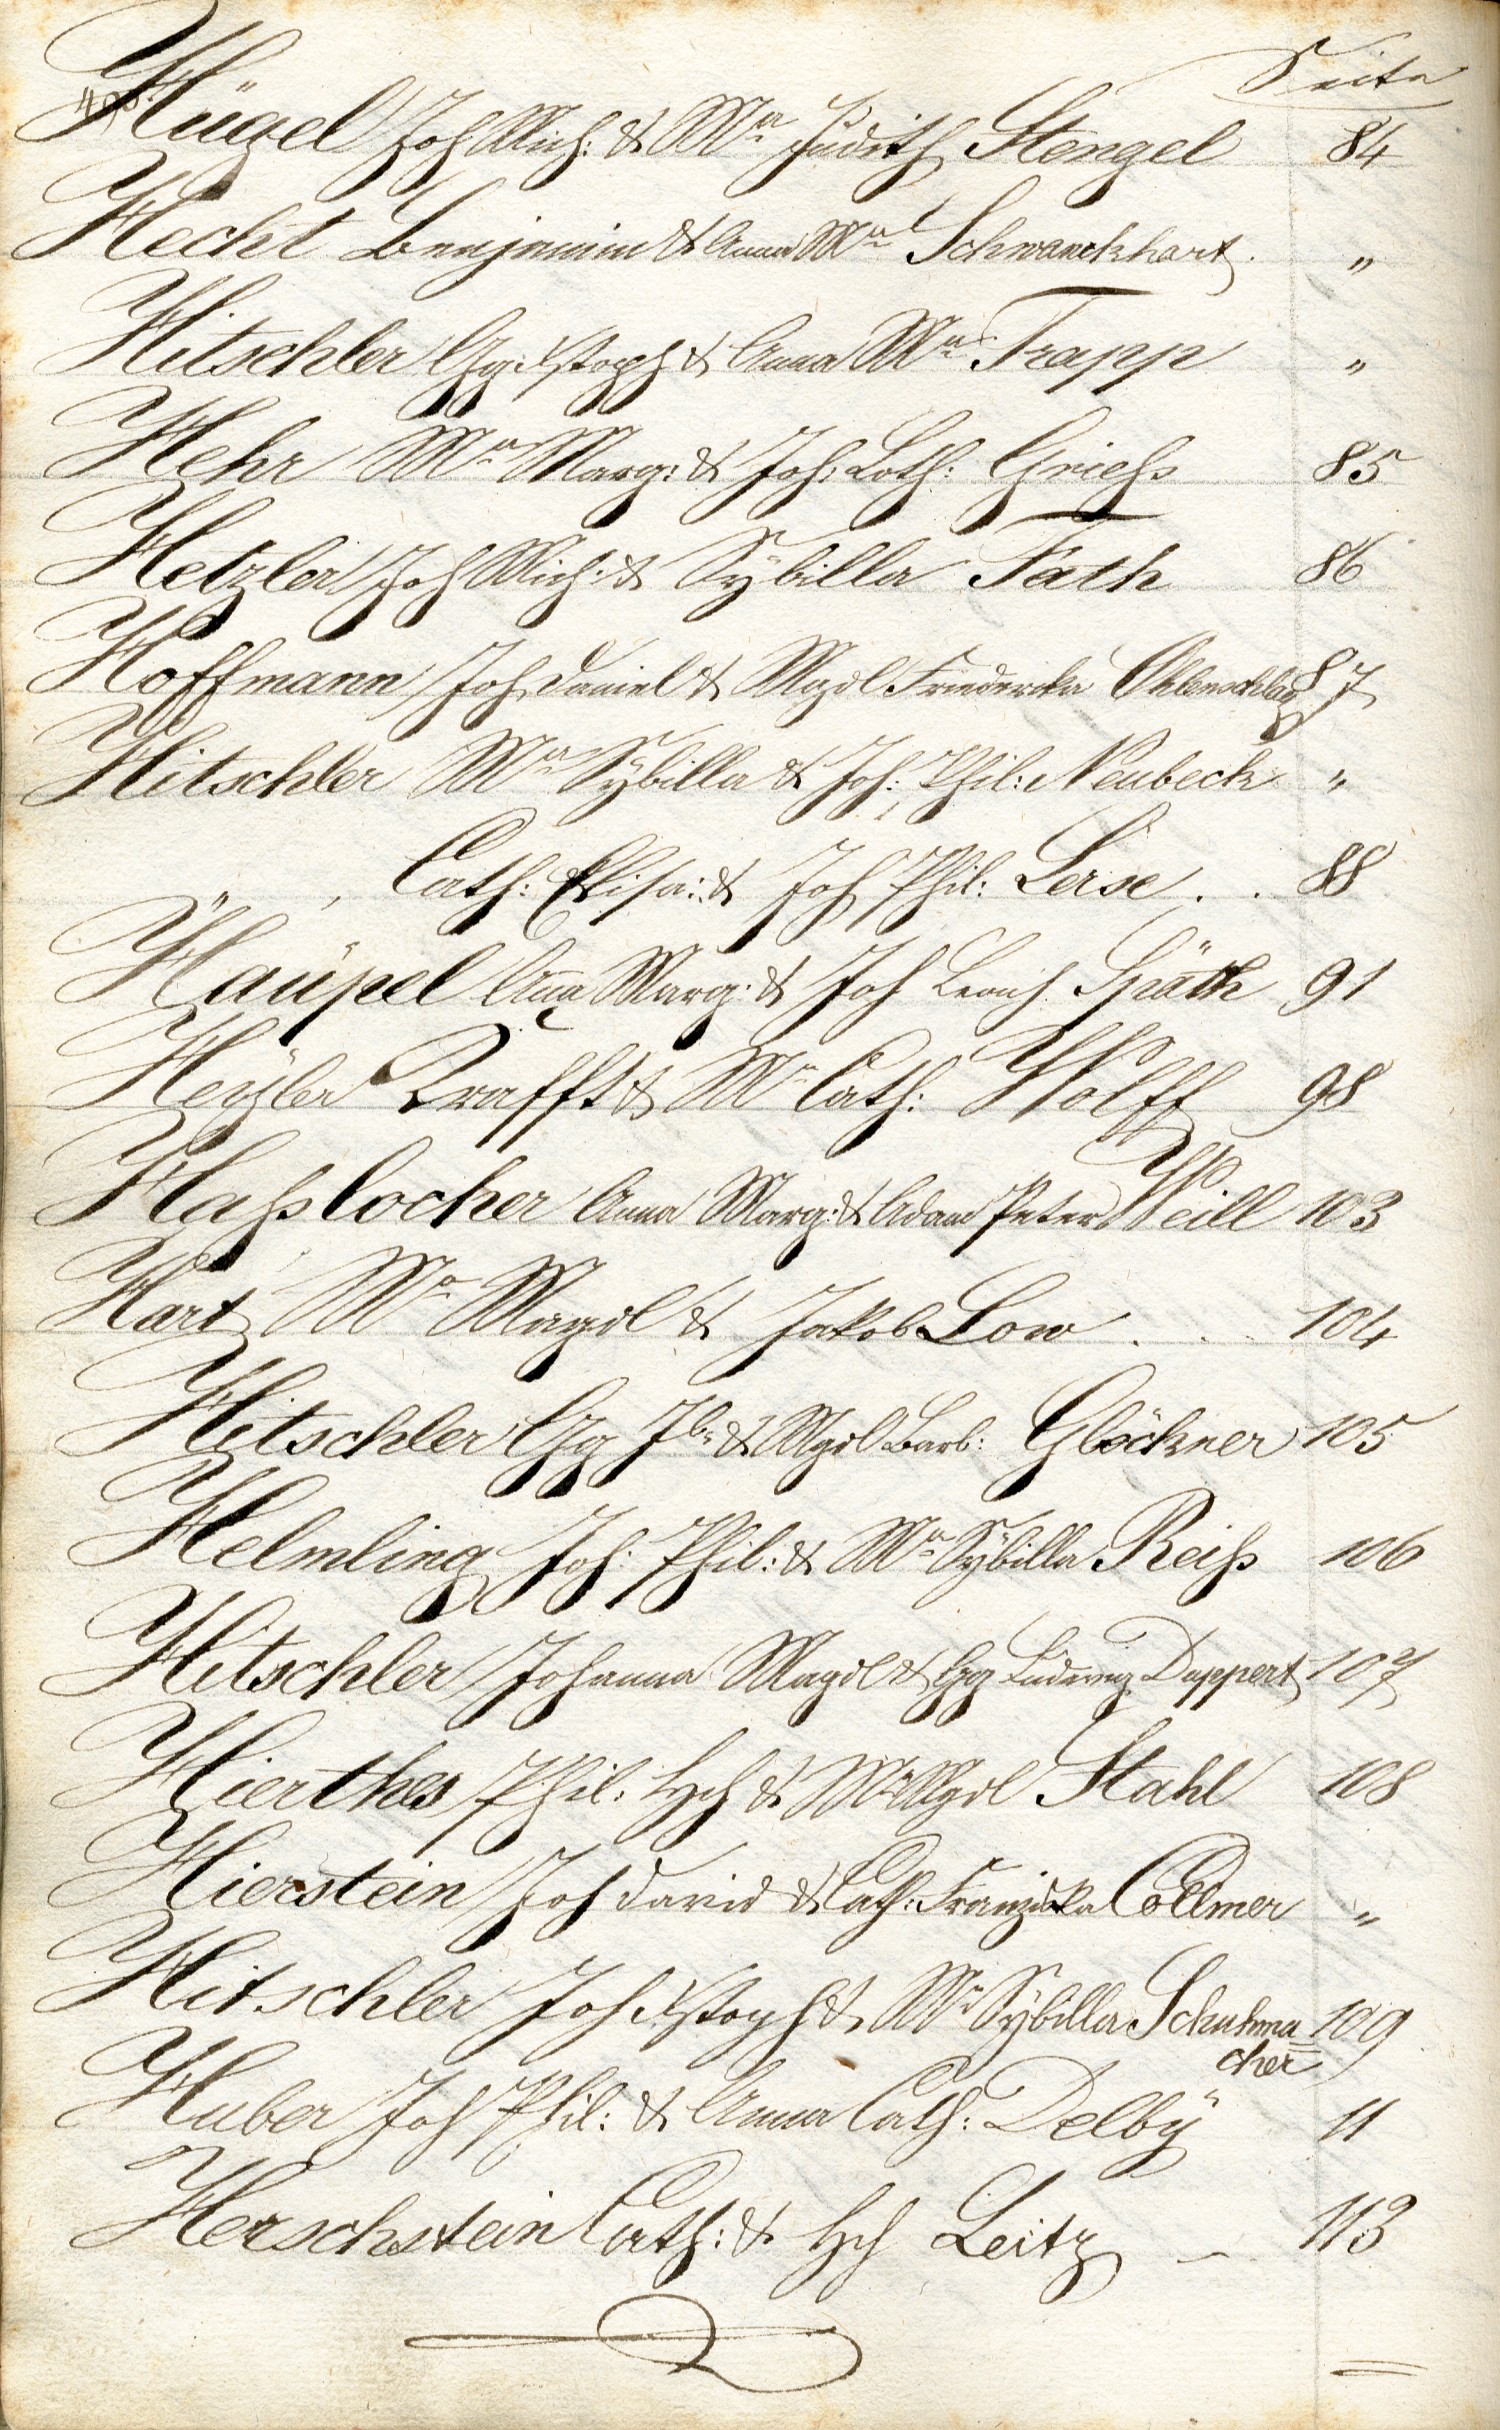 Seite
Hügel Joh Mich: & Mᵃ Judith Stengel 84
Hecht Benjamin & Anna Mᵃ Schwanckhart. "
Hitschler Gg: Xstoph & Anna Mᵃ Trapp "
Hehr Mᵃ Marg: & Joh: Loth: Grieß 85
Hetzler Joh Mich: & Sÿbilla Fath 86
Hoffmann Joh Daniel & Magdl Friedericka Ohlenschlag 87
Hitschler Mᵃ Sÿbilla & Joh: Phil: Neubeck "
" , Cath: Elisa: & Joh Phil: Lerse . . 88
Haüpel Aña Marg: & Joh Späth 91
Heÿler Krafft & Mᵃ Cath: Wolff 98
Haßlocher Anna Marg: & Adam Peter Weill 103
Hart Mᵃ Magdl & Jakob Low . . . 104
Hitschler Gg Jb: & Mgdl Barb: Glöckner 105
Helmling Joh: Phil: & Mᵃ Sÿbilla Reiß 106
Hitschler Johanna Magdl & Gg Ludwig Dappert 107
Hierthes Phil: Hch & Mᵃ Mgdl Stahl 108
Hierstein Joh David & Cath: Franziska Collmer "
Hitschler Joh Xstoph & Mᵃ Sÿbilla Schuhma 109
cher
Huber Joh Phil: & Anna Cath: Delbÿ 11
Herschstein Cath: & Hch Leitz — 113